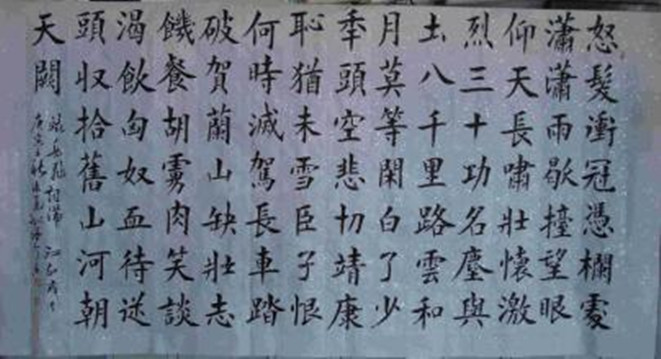 怒髮衝冠憑欄處
瀟瀟雨歇擡望眼
仰天長嘯壯懷激
烈三十功名塵與
土八千里路雲和
月莫等閑白了少
秊頭空悲切靖康
恥猶未雪臣子恨
何時滅駕長車踏
破賀蘭山缺壯志
饑餐胡虜肉笑談
渴飲匈奴血待從
頭収拾舊山河朝
天闕
錄岳飛詞滿江紅